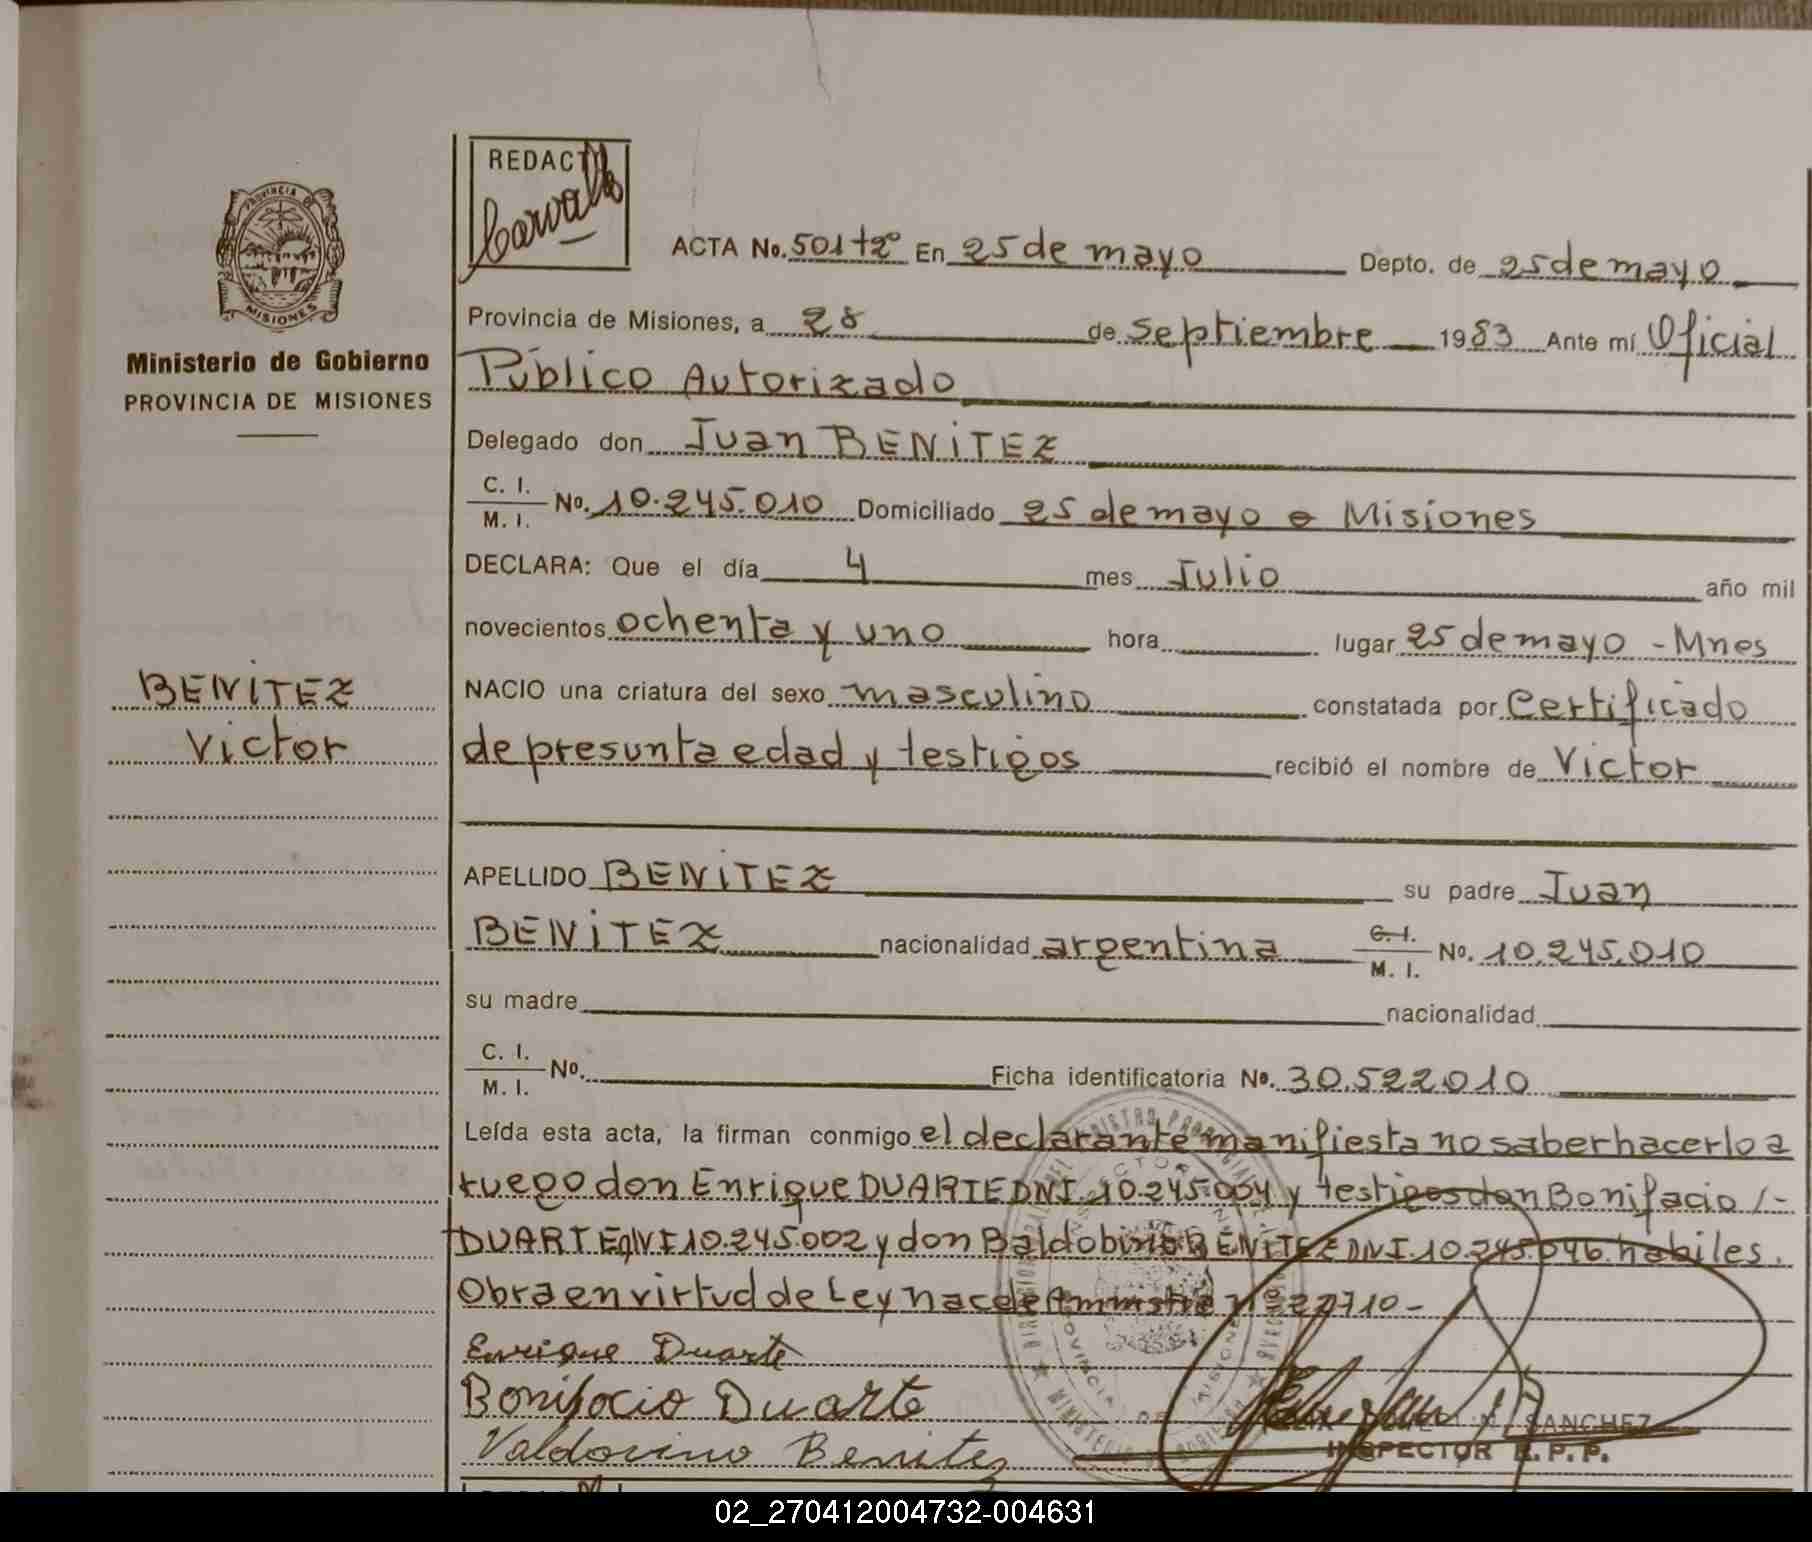 REDACTO
Carvallo
ACTA No. 501 t2º En 25 de mayo Depto. de 25 de mayo
PROVINCIA DE
MISIONES
Provincia de Misiones, a 28 de septiembre 1983 Ante mí Oficial
Ministerio de Gobierno
PROVINCIA DE MISIONES
Público Autorizado
Delegado don Juan BENITEZ
C. I.
M. I. No. 10.245.010 Domiciliado 25 de mayo Misiones
DECLARA: Que el día 4 mes Julio año mil
novecientos ochenta y uno hora lugar 25 de mayo - Mnes
BENITEZ
Victor
NACIO una criatura del sexo masculino constatada por certificado
de presunta edad y testigos recibió el nombre de Victor
APELLIDO BENITEZ su padre Juan
BENITEZ nacionalidad argentina C. I.
M. I. No. 10.245.010
su madre nacionalidad
C. I.
M. I. No. Ficha identificatoria No. 30.522.010
Leída esta acta, la firman conmigo el declarante manifiesta no saber hacerlo a
ruego don Enrique DUARTE DNI. 10.245.004 y testigos don Bonifacio /-
DUARTE DNI 10.245.002 y don Baldobino BENITEZ DNI. 10.245.046. habiles.
Obra en virtud de Ley nac de Amnistia nº 22710-
Enrique Duarte
Bonifocio Duarte
Valdovino Benitez
SANCHEZ
INSPECTOR R. P. P.
02_270412004732-004631